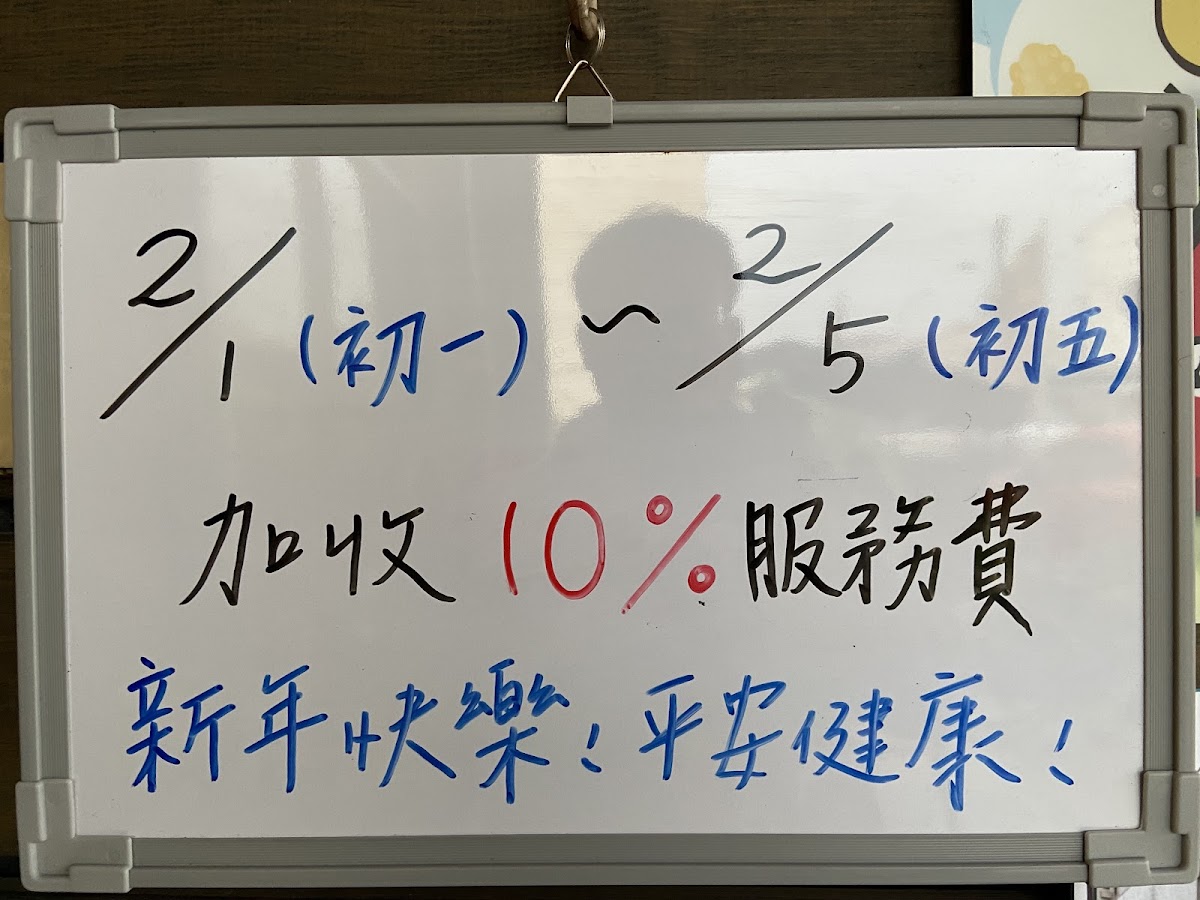 2/1（初一）~2/5（初五）
加收10%服務費
新年快樂！平安健康！